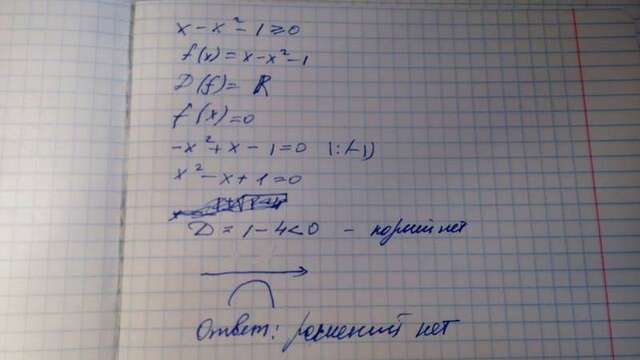 x - x² - 1 ≥ 0
f(x) = x - x² - 1
D(f) = R
f(x) = 0
-x² + x - 1 = 0 |:(-1)
x² - x + 1 = 0
D = 1 - 4 < 0 - корней нет
Ответ: решений нет